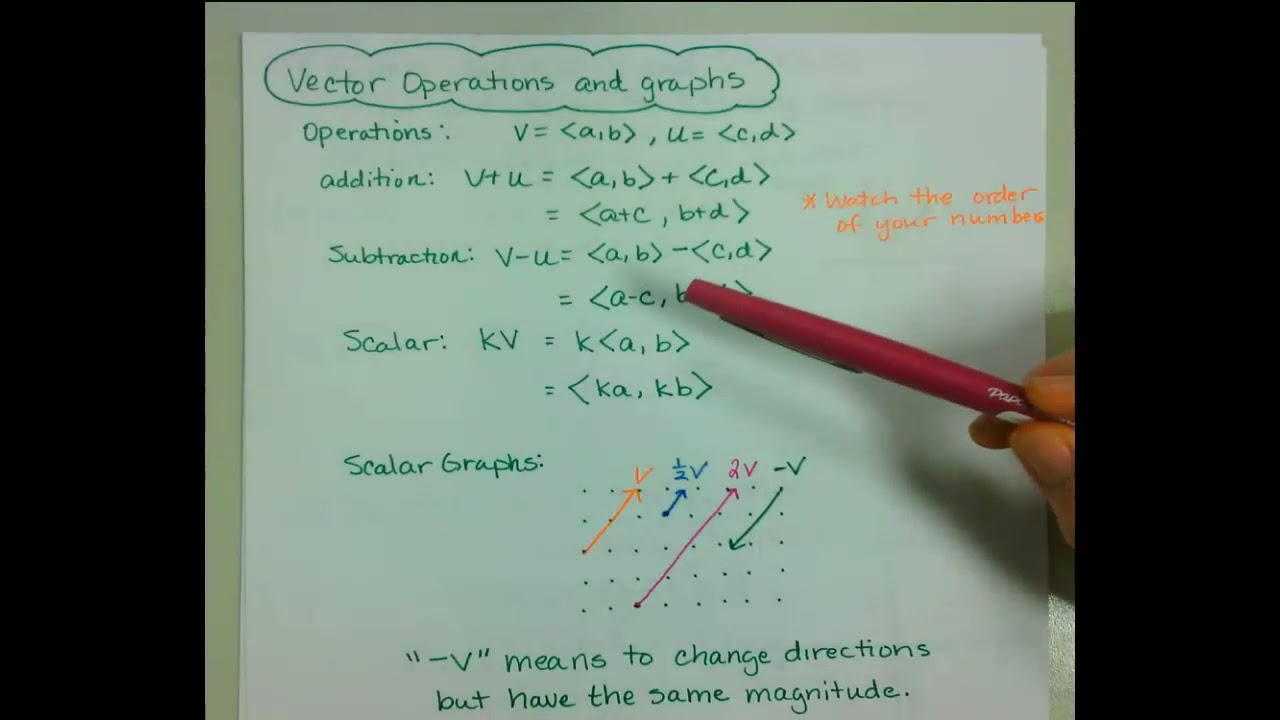 Vector Operations and graphs
Operations: V = <a,b>, u = <c,d>
addition: V+u = <a,b> + <c,d>
= <a+c, b+d>
* Watch the order
of your number
Subtraction: V-u = <a,b> - <c,d>
= <a-c, b
Scalar: KV = k<a, b>
= <ka, kb>
Scalar Graphs: V ½V 2V -V
"-V" means to change directions
but have the same magnitude.